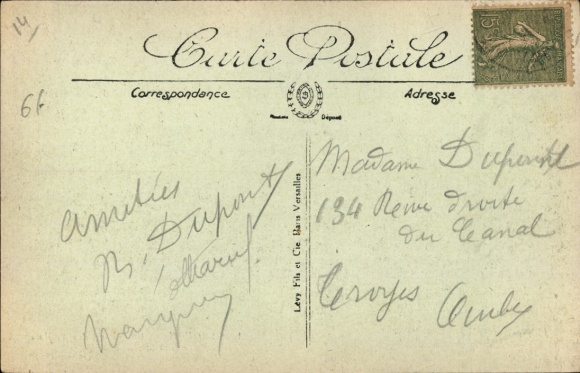 14
Carte Postale
Correspondance
Adresse
Modèle Déposé
66
Amitiés
R. Dupont
Marcel
Lévy Fils et Cie, Paris Versailles
Madame Dupont
134 Reine droite
du Canal
Troyes Aube
15